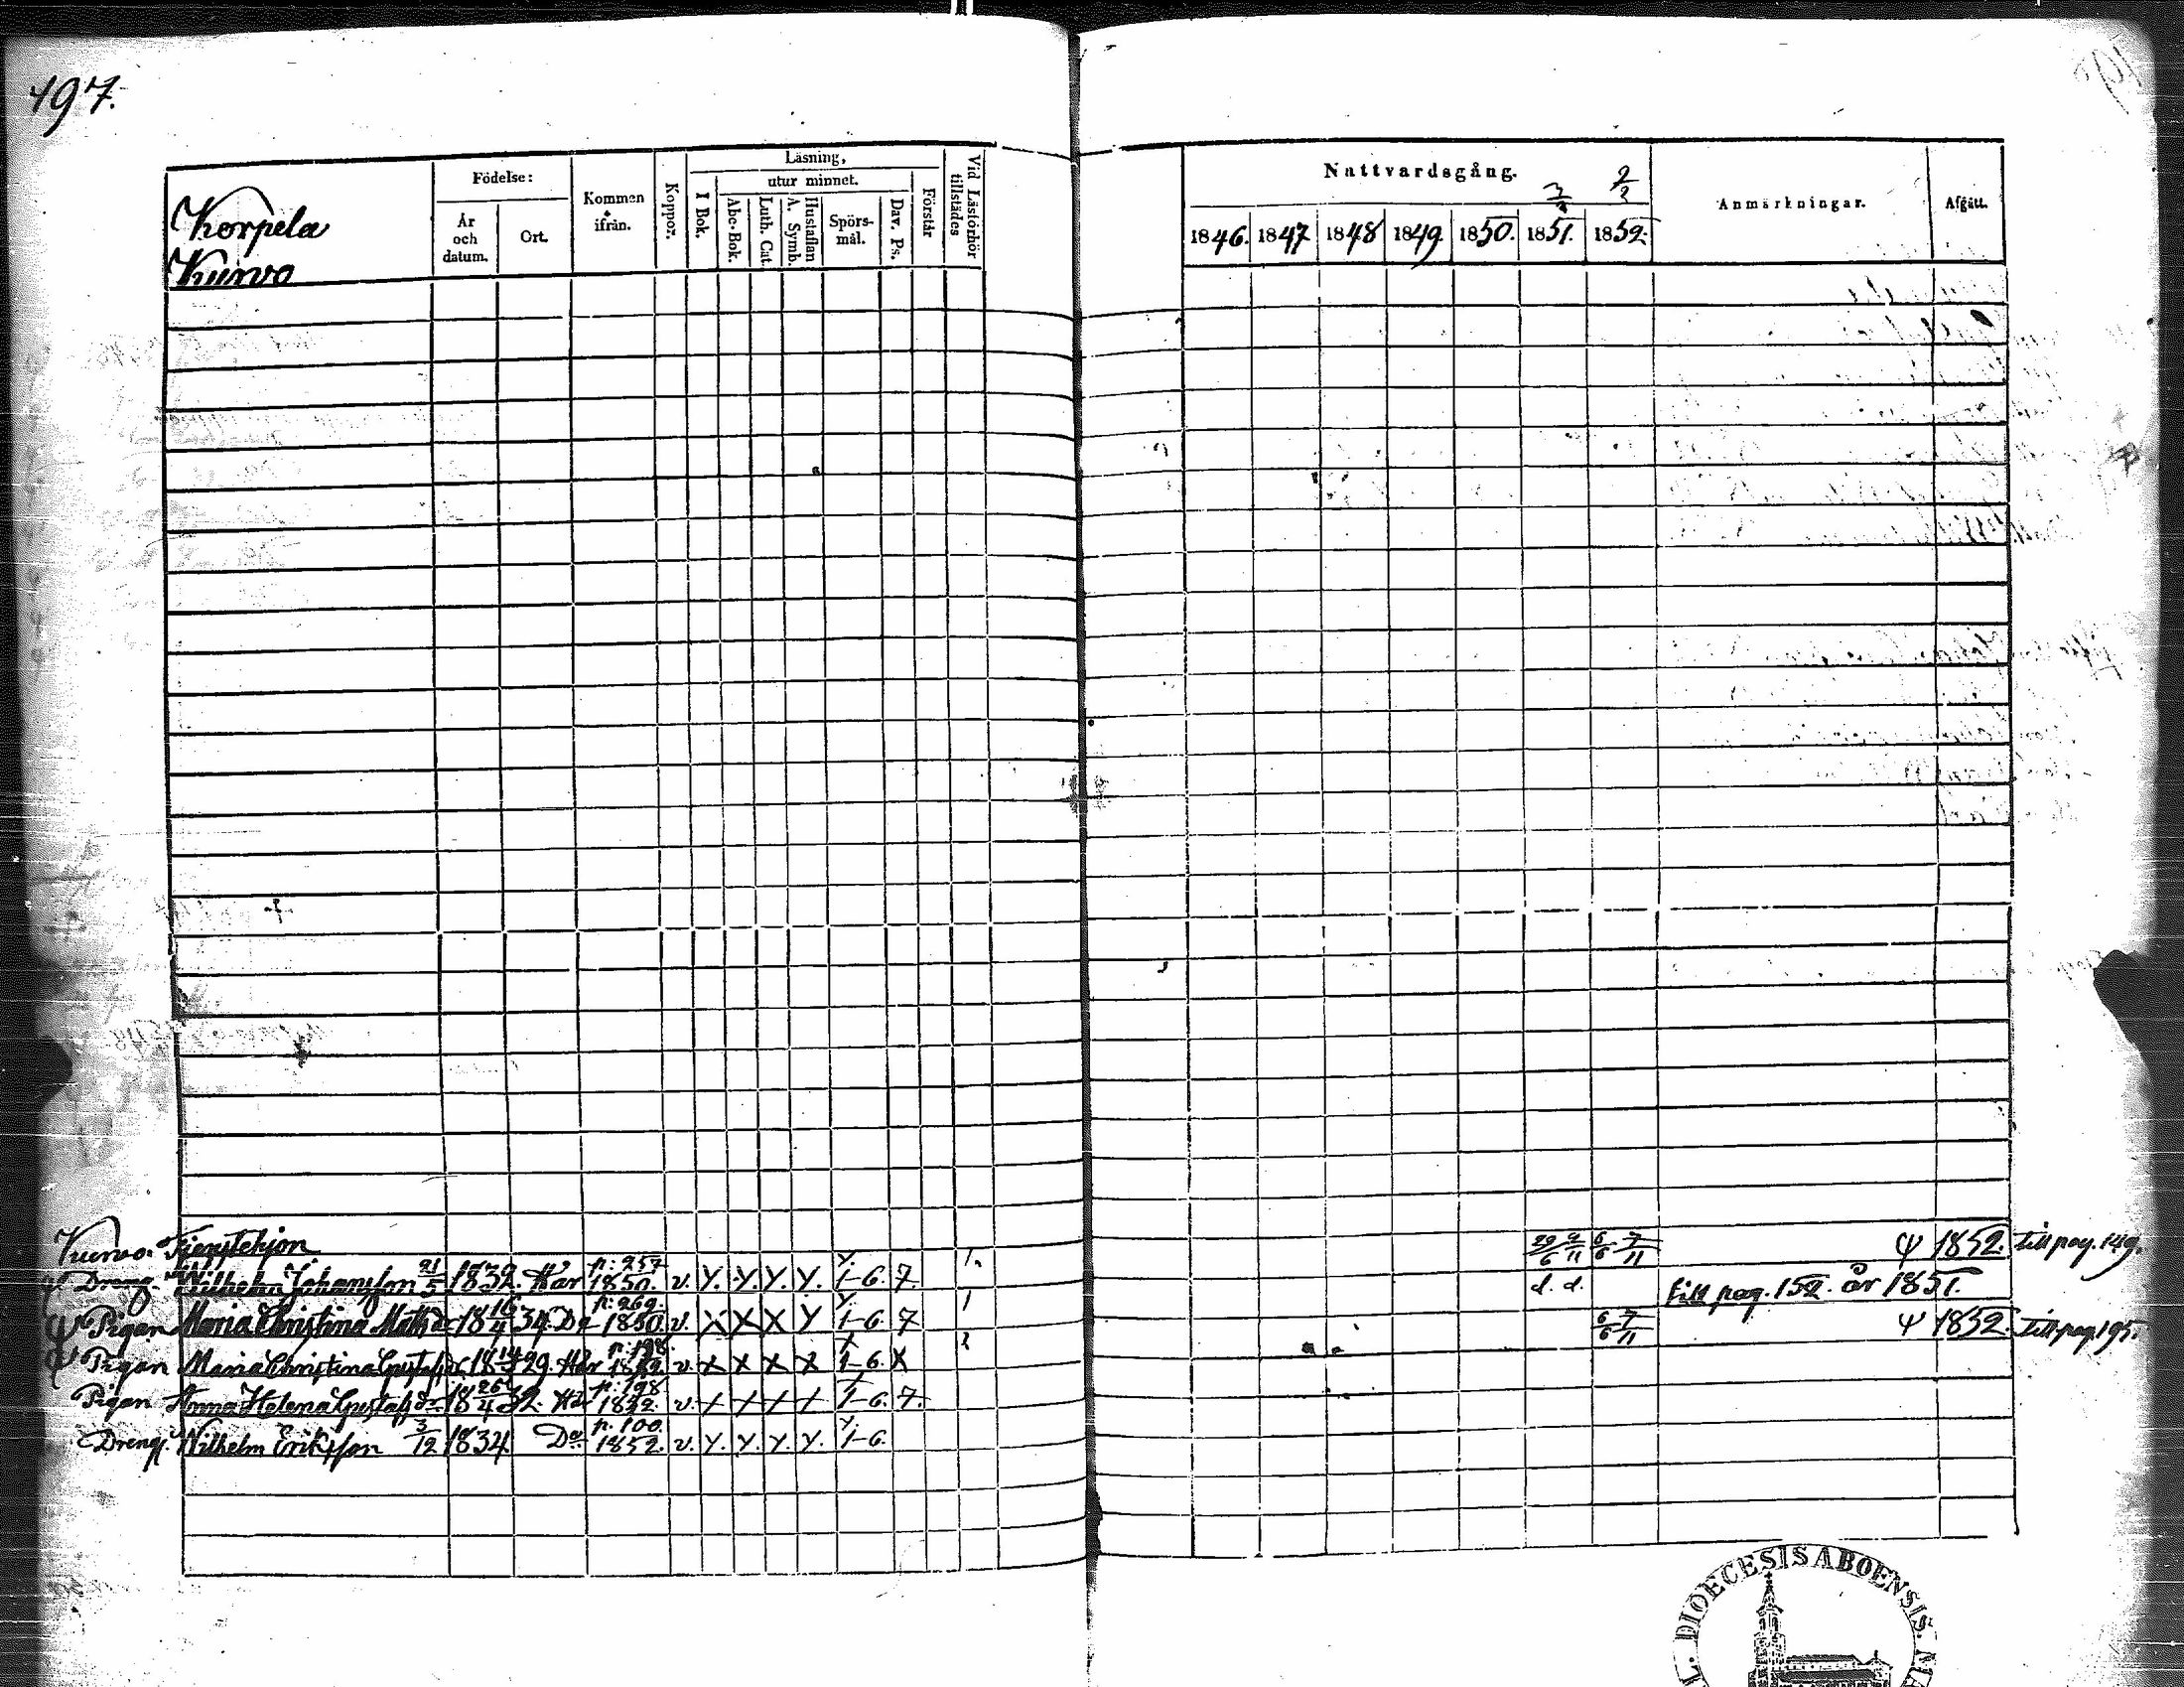 197.
Korpela
Kurvo
Födelse:
År och datum.
Ort.
Kommen ifrån.
Koppor.
Läsning,
I Bok.
utur minnet.
Abc-Bok.
Luth. Cat.
A. Symb.
Hustaflan
Spörs-mål.
Dav. Ps.
Förstår
Vid Läsförhör tillstädes
Nattvardsgång.
1846. 1847 1848 1849. 1850. 1851. 1852.
Anmärkningar.
Afgått.
Kurvo. Tjenstehjon
Dreng. Wilhelm Johansson 21/5 1832. Här p: 257 1850. v. y. y. y. y. 1-6. 7. 1. 29/6 9/11 6/6 7/11 ψ 1852. till pag. 149.
ψ Pigan Maria Christina Matsdr 18 16/4 34. Do p: 269. 1850. v. X X X y 1-6. 7 1 d. d. till pag. 152. år 1851.
ψ Pigan Maria Christina Gustafsdr 18 29. Här p: 198. v. x x x x 1-6. X 2 6/6 7/11 ψ 1852. till pag. 195.
Pigan Anna Helena Gustafsdr 18 32. Här p: 198 v. 1-6. 7.
Dreng. Wilhelm Eriksson 3/12 1834. Do p. 100. 1852. v. y. y. y. y. 1-6.
DIOECESIS ABOENSIS.